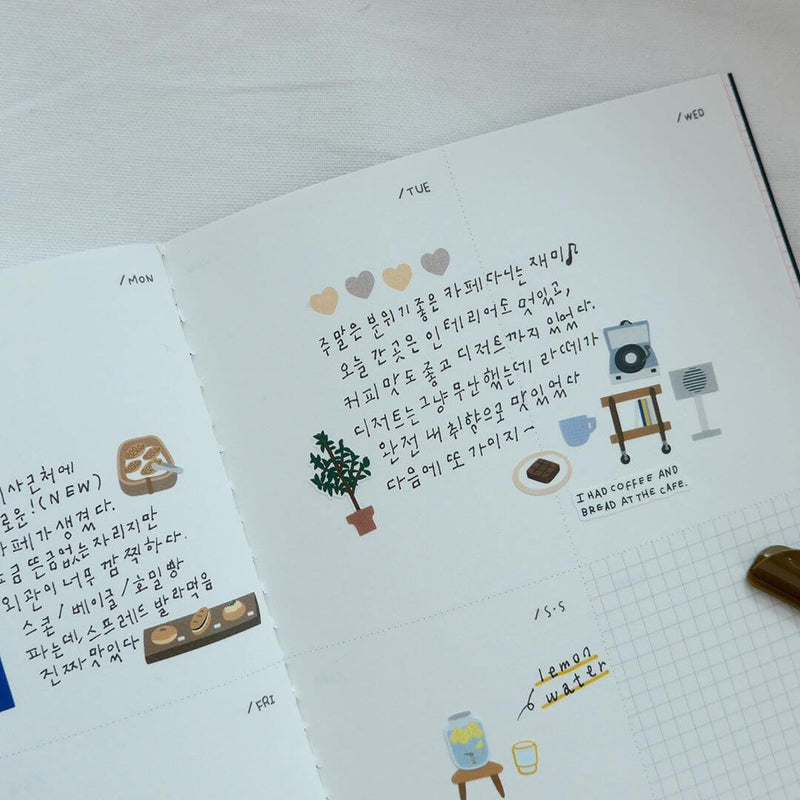 /MON
사근처에
로운!(NEW)
카페가 생겼다.
조금 뜬금없는 자리지만
외관이 너무 깜찍하다.
스콘/베이글/호밀빵
파는데, 스프레드 발라먹음
진짜 맛있다
/TUE
주말은 분위기 좋은 카페 다니는 재미♪
오늘 간 곳은 인테리어도 멋있고,
커피 맛도 좋고 디저트까지 있었다.
디저트는 그냥 무난했는데 라떼가
완전 내 취향으로 맛있었다
다음에 또 가야지~
I HAD COFFEE AND
BREAD AT THE CAFE.
/WED
/FRI
/S.S
lemon
water